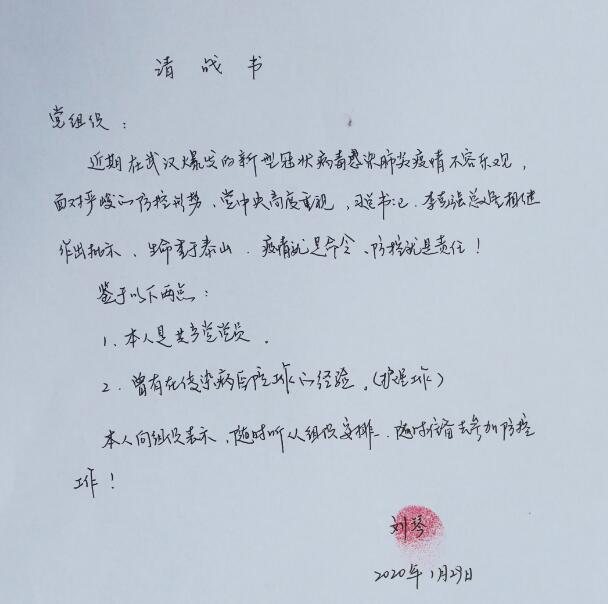 请战书
党组织：
近期在武汉爆发的新型冠状病毒感染肺炎疫情不容乐观，
面对严峻的防控形势、党中央高度重视，习总书记、李克强总理相继
作出批示、生命重于泰山．疫情就是命令、防控就是责任！
鉴于以下两点：
1、本人是共产党党员．
2．曾有在传染病医院工作的经验．（护理工作）
本人向组织表示、随时听从组织安排．随时准备去参加防控
工作！
刘琴
2020年1月29日